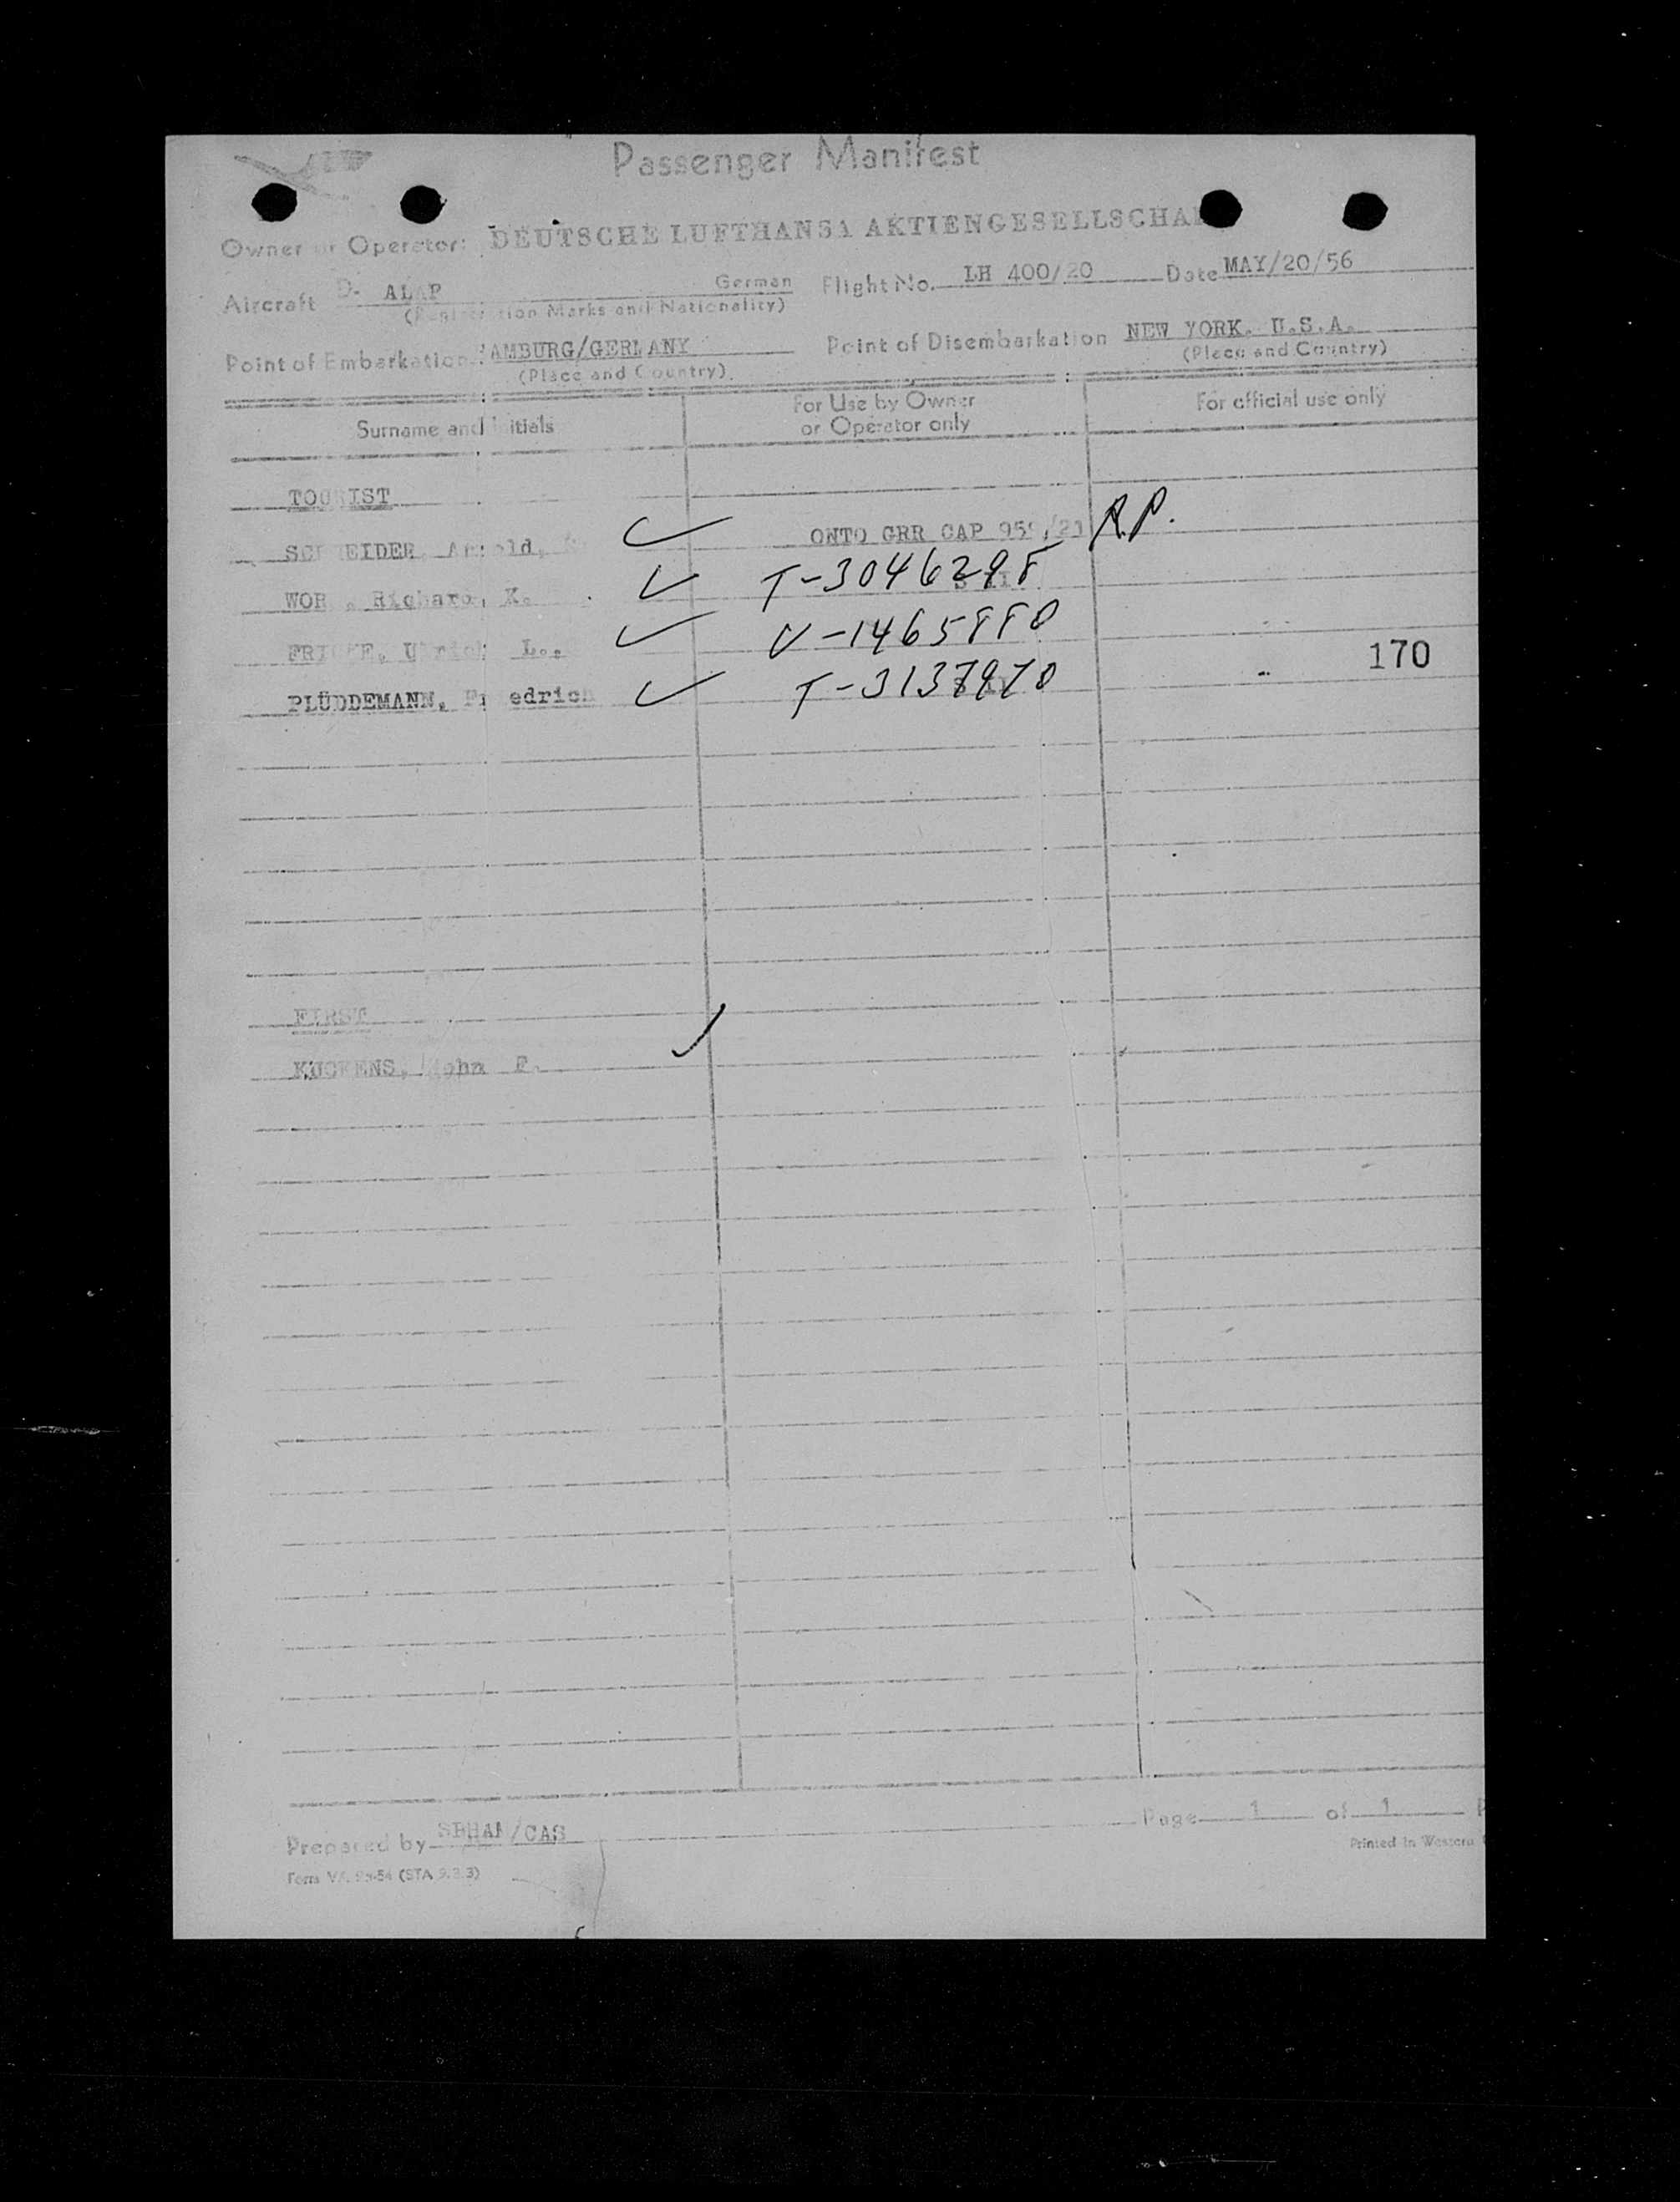 Passenger Manifest
Owner or Operator: DEUTSCHE LUFTHANSA AKTIENGESELLSCHA
Aircraft D- ALAP German Flight No. LH 400/20 Date MAY/20/56
(Registration Marks and Nationality)
Point of Embarkation HAMBURG/GERMANY Point of Disembarkation NEW YORK, U.S.A.
(Place and Country) (Place and Country)
Surname and Initials For Use by Owner or Operator only For official use only
TOURIST
Arnold, ONTO GRR CAP R.P.
Richard, K. T-3046298
L. V-1465880
170
PLÜDDEMANN, Friedrich T-3137970
FIRST
John F.
Prepared by /CAS Page 1 of 1
Printed in Western
Form (STA 9.3.3)